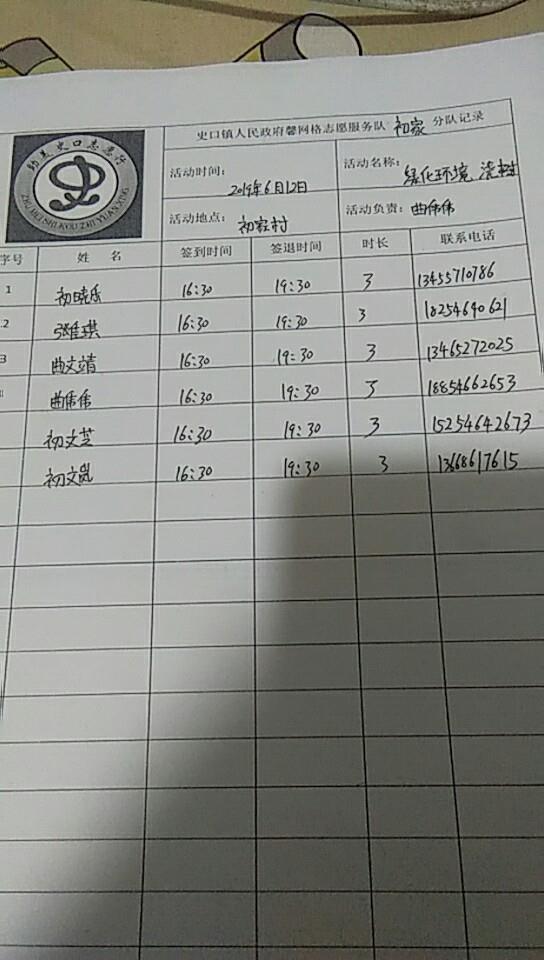 史口镇人民政府馨网格志愿服务队 初家 分队记录
助美史口志愿行
ZHU MEI SHI KOU ZHI YUAN XING
活动时间: 2019年6月12日
活动名称: 绿化环境 浇树
活动地点: 初家村
活动负责: 曲伟伟
序号 姓 名 签到时间 签退时间 时长 联系电话
1 初晓乐 16:30 19:30 3 13455710786
2 张佳琪 16:30 19:30 3 18254640621
3 曲文靖 16:30 19:30 3 13465272025
曲伟伟 16:30 19:30 3 18854662653
初文芝 16:30 19:30 3 15254642673
初文岚 16:30 19:30 3 13668617615